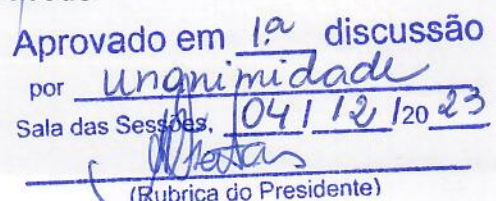 Aprovado em 1ª discussão
por unanimidade
Sala das Sessões, 04 / 12 /20 23
(Rubrica do Presidente)